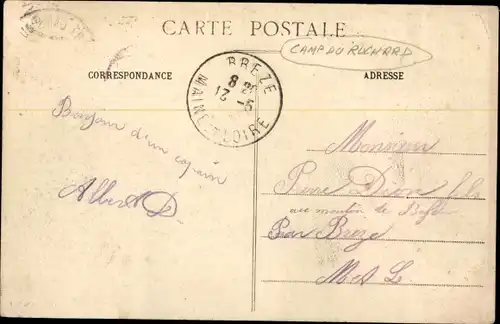 CARTE POSTALE
CAMP DU RUCHARD
CORRESPONDANCE
ADRESSE
BREZE
8
MAINE-ET-LOIRE
Bonjour d'un copain
Albert D
Monsieur
Pierre Dion fils
au moulin de
Par Breze
M et L